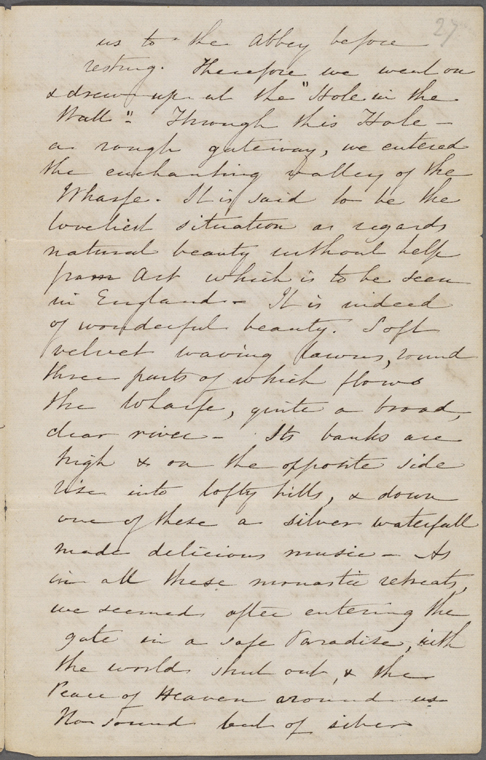 27
us to the Abbey before
resting. Therefore we went on
& drew up at the "Hole in the
Wall". Through this Hole -
a rough gateway, we entered
the enchanting valley of the
Wharfe. It is said to be the
loveliest situation as regards
natural beauty without help
from Art which is to be seen
in England. - It is indeed
of wonderful beauty. Soft
velvet waving lawns, round
three parts of which flows
the Wharfe, quite a broad,
clear river - Its banks are
high & on the opposite side
rise into lofty hills, & down
one of these a silver waterfall
made delicious music - As
in all these monastic retreats,
we seemed after entering the
gate in a safe Paradise, with
the world shut out, & the
Peace of Heaven around us
No sound but of silver